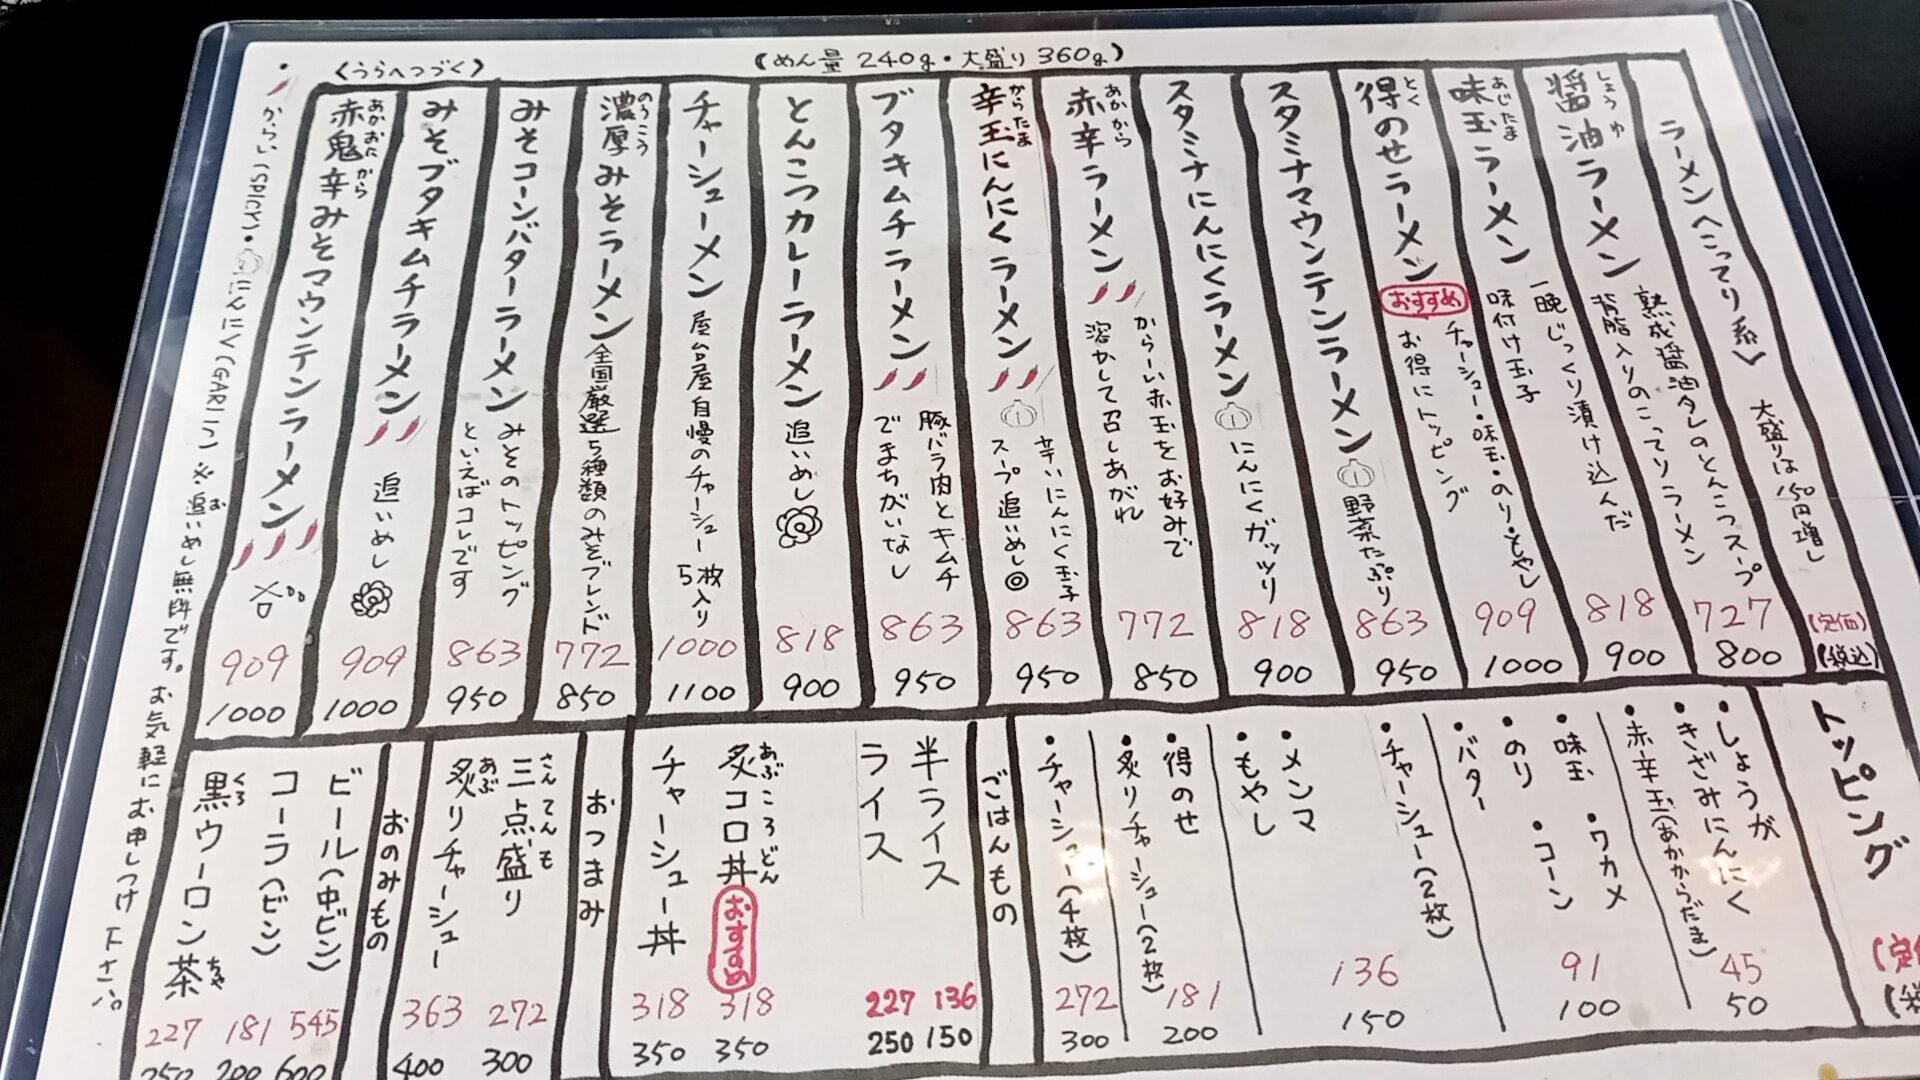 (めん量 240g・大盛り 360g)
〈うらへつづく〉
ラーメン〈こってり系〉 大盛りは150円増し (定価) (税込)
醤油ラーメン しょうゆ 熟成醤油タレのとんこつスープ
背脂入りのこってりラーメン 727 800
味玉ラーメン あじたま 一晩じっくり漬け込んだ
味付け玉子 818 900
得のせラーメン とく おすすめ チャーシュー・味玉・のり・もやし
お得にトッピング 909 1000
スタミナマウンテンラーメン 野菜たっぷり 863 950
スタミナにんにくラーメン にんにくガッツリ 818 900
赤辛ラーメン あかから からーい赤玉をお好みで
溶かして召しあがれ 772 850
辛玉にんにくラーメン からたま 辛いにんにく玉子
スープ追いめし◎ 863 950
ブタキムチラーメン 豚バラ肉とキムチ
でまちがいなし 863 950
とんこつカレーラーメン 追いめし 818 900
チャーシューメン 屋台屋自慢のチャーシュー5枚入り 1000 1100
濃厚みそラーメン のうこう 全国厳選5種類のみそブレンド 772 850
みそコーンバターラーメン みそのトッピング
といえばコレです 863 950
みそブタキムチラーメン 追いめし 909 1000
赤鬼辛みそマウンテンラーメン あかおにから 909 1000
・からい(SPICY)・にんにく(GARLIC) ※追いめし無料です。お気軽にお申しつけ下さい。
トッピング
・しょうが
・きざみにんにく
・赤辛玉(あかからだま) 45 50
・味玉 ・ワカメ
・のり ・コーン
・バター 91 100
・チャーシュー(2枚) 136 150
・メンマ
・もやし
・得のせ
・炙りチャーシュー(2枚) 181 200
・チャーシュー(4枚) 272 300
ごはんもの
半ライス 136 150
ライス 227 250
炙コロ丼 あぶころどん おすすめ 318 350
チャーシュー丼 318 350
おつまみ
三点盛り さんてんも 272 300
炙りチャーシュー あぶ 363 400
おのみもの
ビール(中ビン) 545 600
コーラ(ビン) 181 200
黒ウーロン茶 くろ ちゃ 227 250